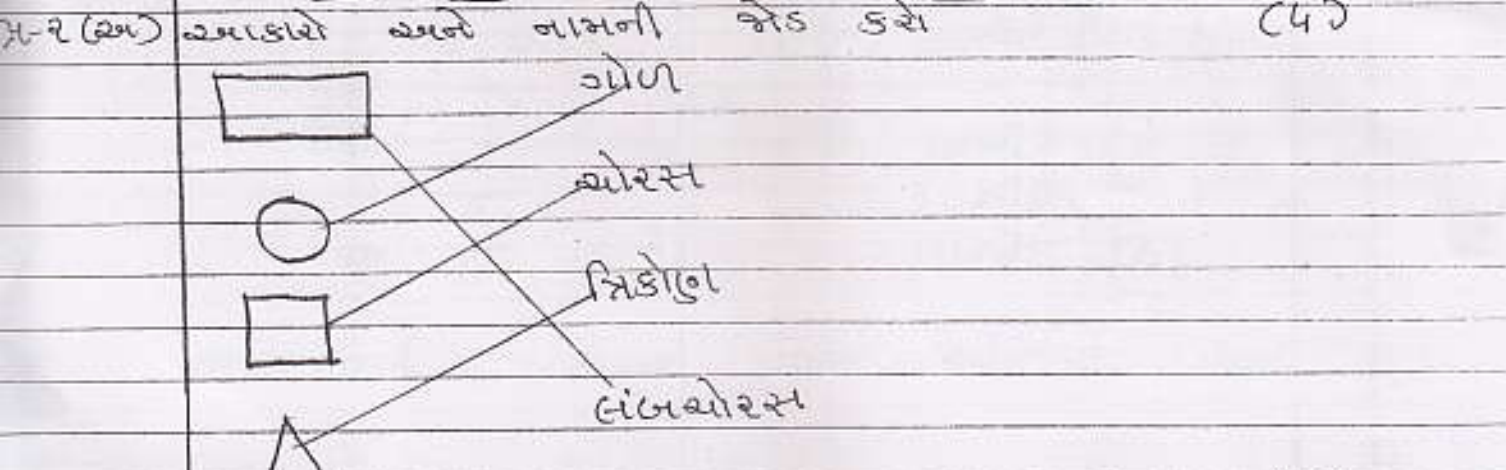 પ્ર-૨ (અ) આકારો અને નામની જોડ કરો (4)
ગોળ
ચોરસ
ત્રિકોણ
લંબચોરસ